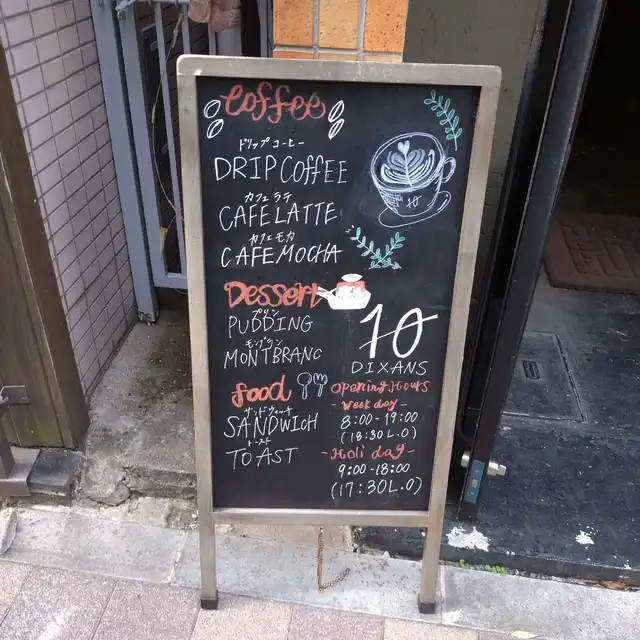 Coffee
ドリップコーヒー
DRIP COFFEE
カフェラテ
CAFE LATTE
カフェモカ
CAFE MOCHA
10
Dessert
プリン
PUDDING
モンブラン
MONTBRANC
food
サンドウィッチ
SANDWICH
トースト
TOAST
10
DIXANS
Opening Hours
- Week day -
8:00-19:00
(18:30 L.O)
- Holi day -
9:00-18:00
(17:30 L.O)